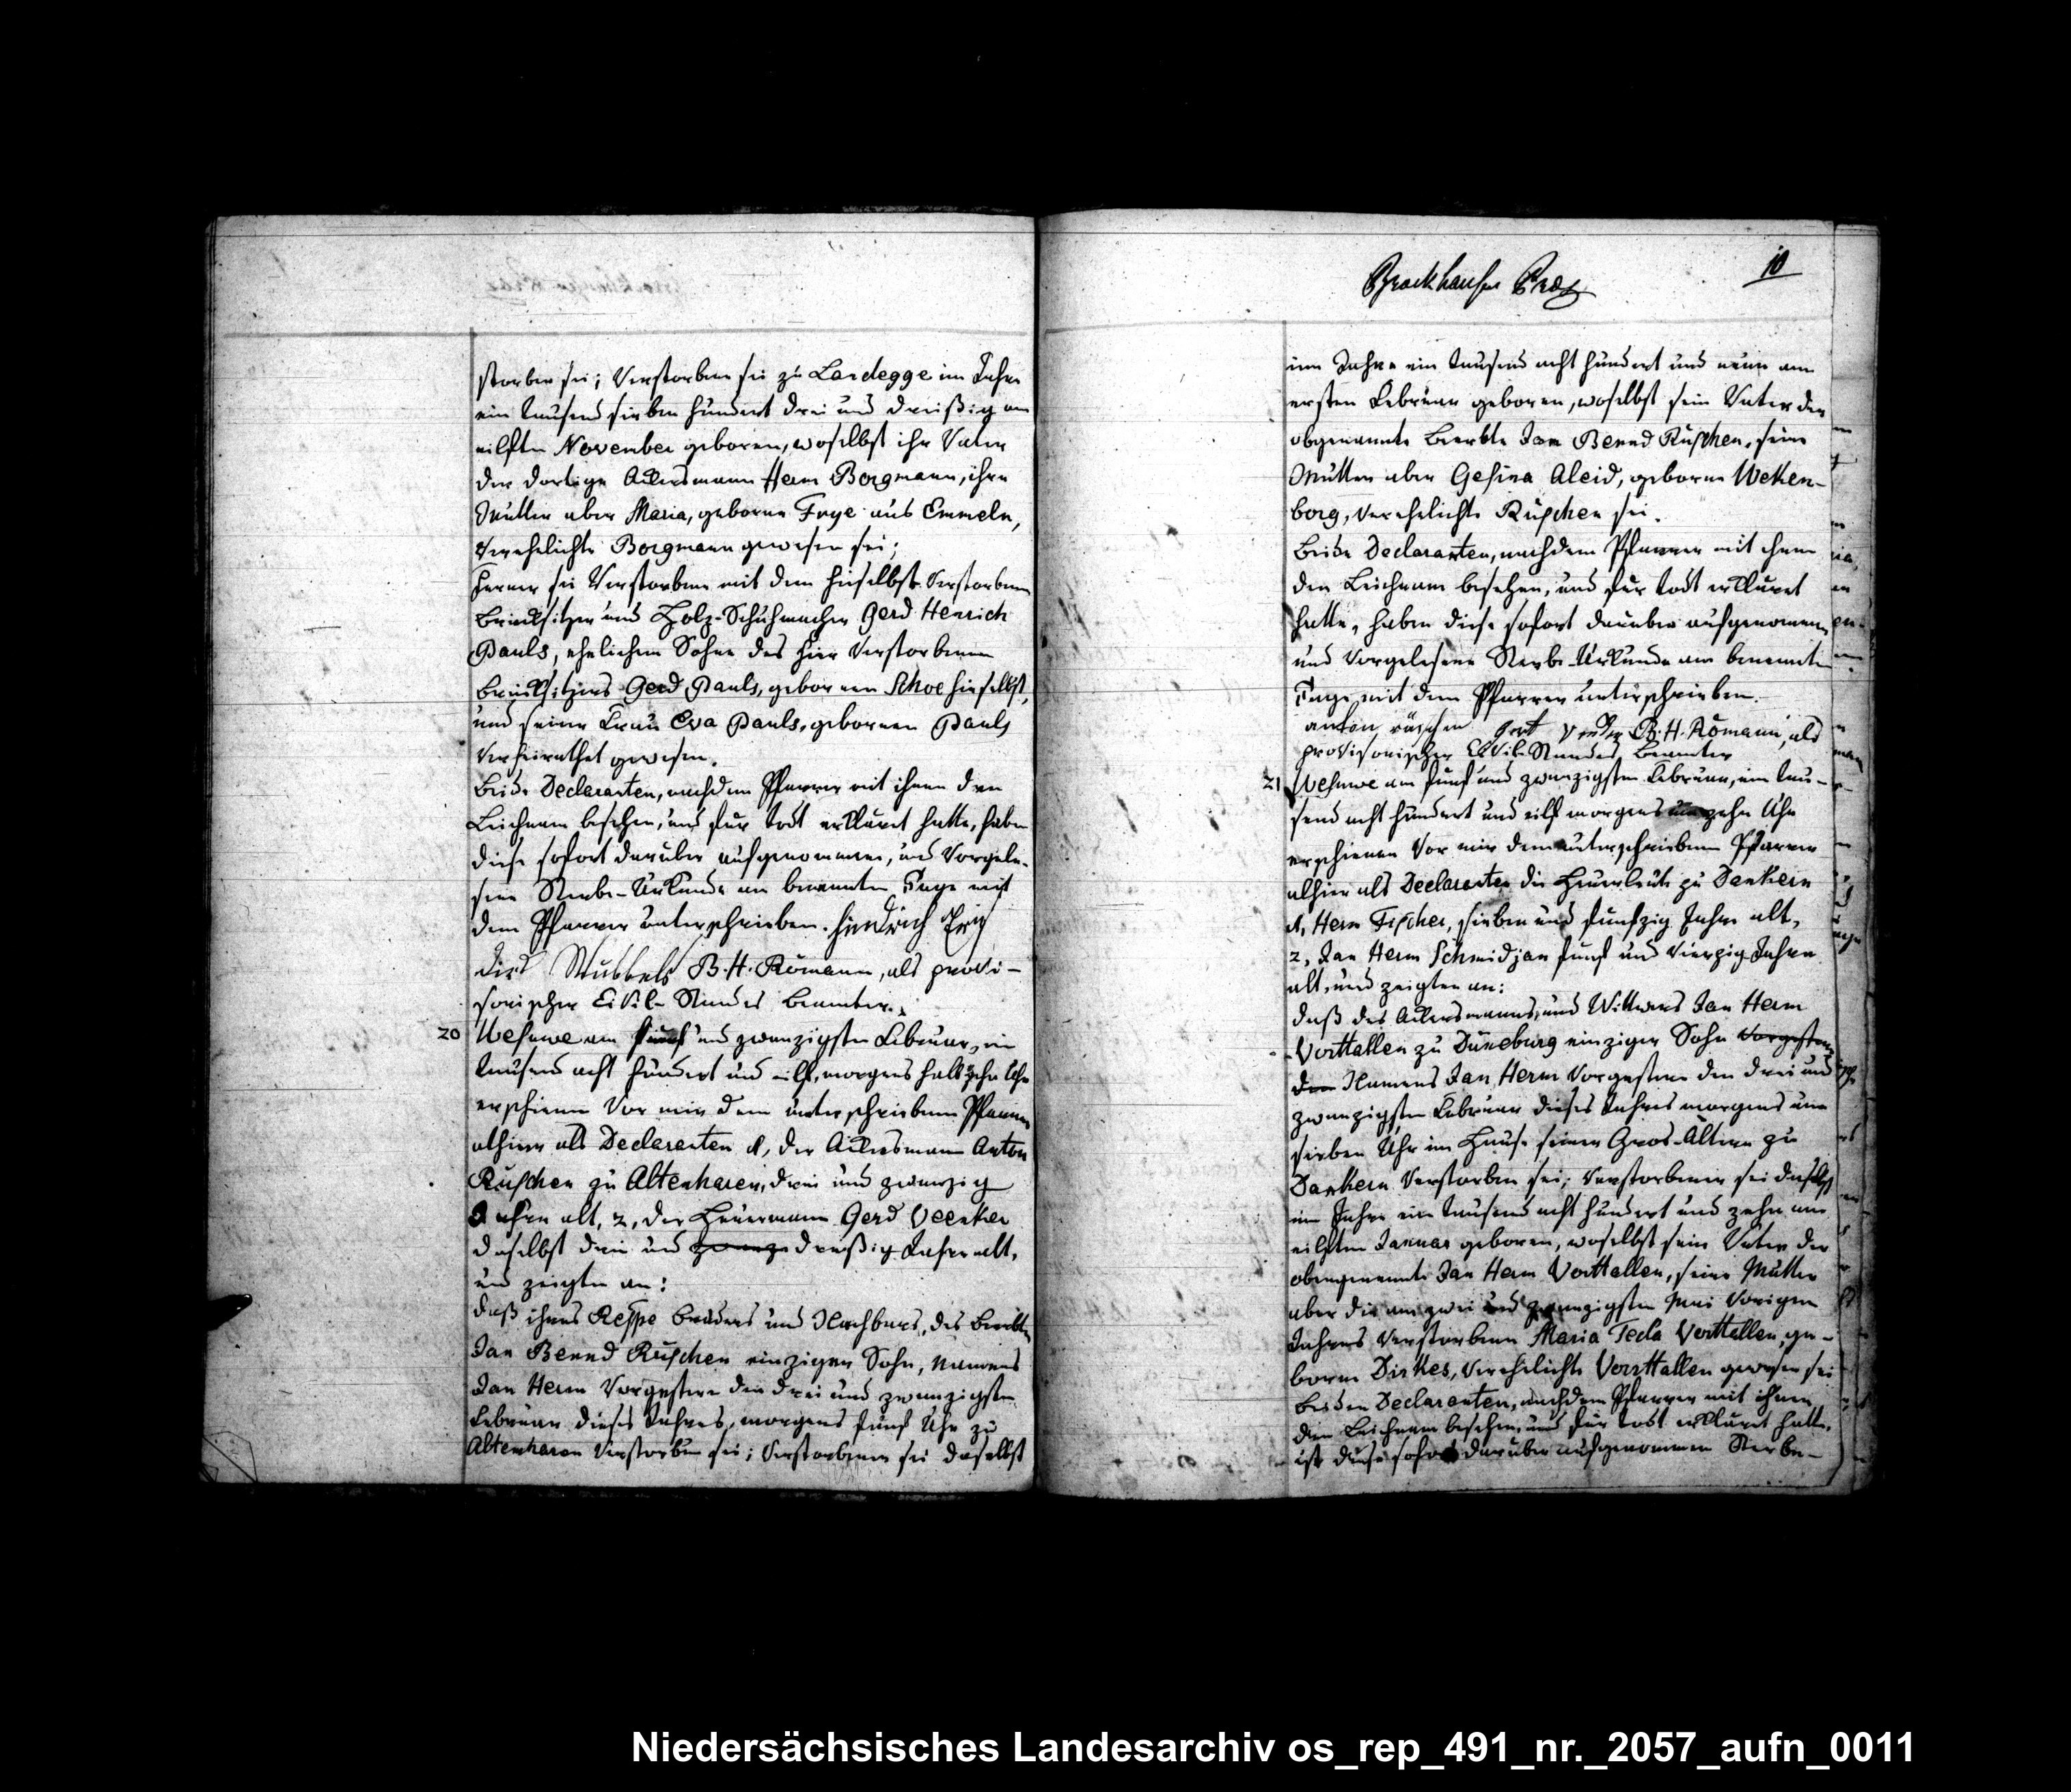 storben sei; Verstorbene sei zu Landegge im Jahre
ein tausend sieben hundert drei und dreißig am
eilften November geboren, woselbst ihr Vater
der dortige Ackersmann Herm Borgmann, ihre
Mutter aber Maria, geborne Frye aus Emmeln,
verehelichte Borgmann gewesen sei;
ferner sei Verstorbene mit dem hieselbst Verstorbenen
Brinksitzer und Holz-Schuhmacher Gerd Henrich
Pauls, ehelichem Sohne des hier Verstorbenen
Brinksitzers Gerd Pauls, gebornen Schoe hieselbst,
und seiner Frau Eva Pauls, gebornen Pauls
Verheirathet gewesen.
Beide Declaranten, nachdem Pfarrer mit ihnen den
Leichnam besehen, und für todt erkläret hatte, haben
diese sofort darüber aufgenommene, und Vorgele-
sene Sterbe-Urkunde am benannten Tage mit
dem Pfarrer unterschrieben. Hindrich
Dirk Stubbels B. H. Römann, als provi-
sorischer Civil-Standes Beamter.
20 Wesuwe am fünf und zwanzigsten Februar, ein
tausend acht hundert und eilf, morgens halb zehn Uhr
erschienen Vor mir dem unterschriebenen Pfarrer
alhier als Declaranten 1, der Ackersmann Anton
Ruschen zu Altenharen, drei und zwanzig
Jahre alt, 2, der Heuermann Gerd Veenker
daselbst drei und zwanzi dreißig Jahre alt,
und zeigten an:
daß ihres Reppe Bruders und Nachbars, des Beerbten
Jan Bernd Ruschen einziger Sohn, Namens
Jan Herm Vorgestern den drei und zwanzigsten
Februar dieses Jahres, morgens fünf Uhr zu
Altenharen Verstorben sei; Verstorbener sei daselbst
Brockhausen
10
im Jahre ein tausend acht hundert und neun am
ersten Februar geboren, woselbst sein Vater der
obgenannte Beerbte Jan Bernd Ruschen, seine
Mutter aber Gesina Aleid, geborne Weken-
borg, Verehelichte Ruschen sei.
Beide Declaranten, nachdem Pfarrer mit ihnen
den Leichnam besehen, und für todt erkläret
hatte, haben diese sofort darüber aufgenommene,
und Vorgelesene Sterbe-Urkunde am benannten
Tage mit dem Pfarrer unterschrieben.
anton rüschen Gert B. H. Römann, als
provisorischer Civil-Standes Beamter
21 Wesuwe am fünf und zwanzigsten Februar, ein tau-
send acht hundert und eilf morgens um zehn Uhr
erschienen Vor mir dem unterschriebenen Pfarrer
alhier als Declaranten die Heuerleute zu Dankern
1, Herm Fischer, sieben und fünfzig Jahre alt,
2, Jan Herm Schmidjan fünf und Vierzig Jahre
alt, und zeigten an:
daß des Ackersmanns, und Wittwers Jan Herm
Vorttallen zu Düneburg einziger Sohn Vorgestern
den Namens Jan Herm Vorgestern den drei und
zwanzigsten Februar dieses Jahres morgens um
sieben Uhr im Hause seiner Gros-Ältern zu
Dankern Verstorben sei; Verstorbener sei daselbst
im Jahre ein tausend acht hundert und zehn am
eilften Januar geboren, woselbst sein Vater der
obengenannte Jan Herm Vorttallen, seine Mutter
aber die am zwei und zwanzigsten Mai Vorigen
Jahres Verstorbene Maria Tecla Vorttallen, ge-
borne Dirkes, Verehelichte Vorttallen gewesen sei
Beiden Declaranten, nachdem Pfarrer mit ihnen
den Leichnam besehen, und für todt erkläret hatte,
ist diese sofort darüber aufgenommene Sterbe-
Niedersächsisches Landesarchiv os_rep_491_nr._2057_aufn_0011